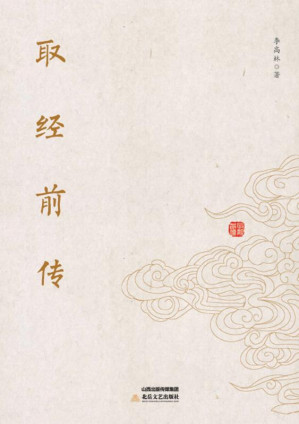 取经前传
李高林◎著
山西出版传媒集团
北岳文艺出版社